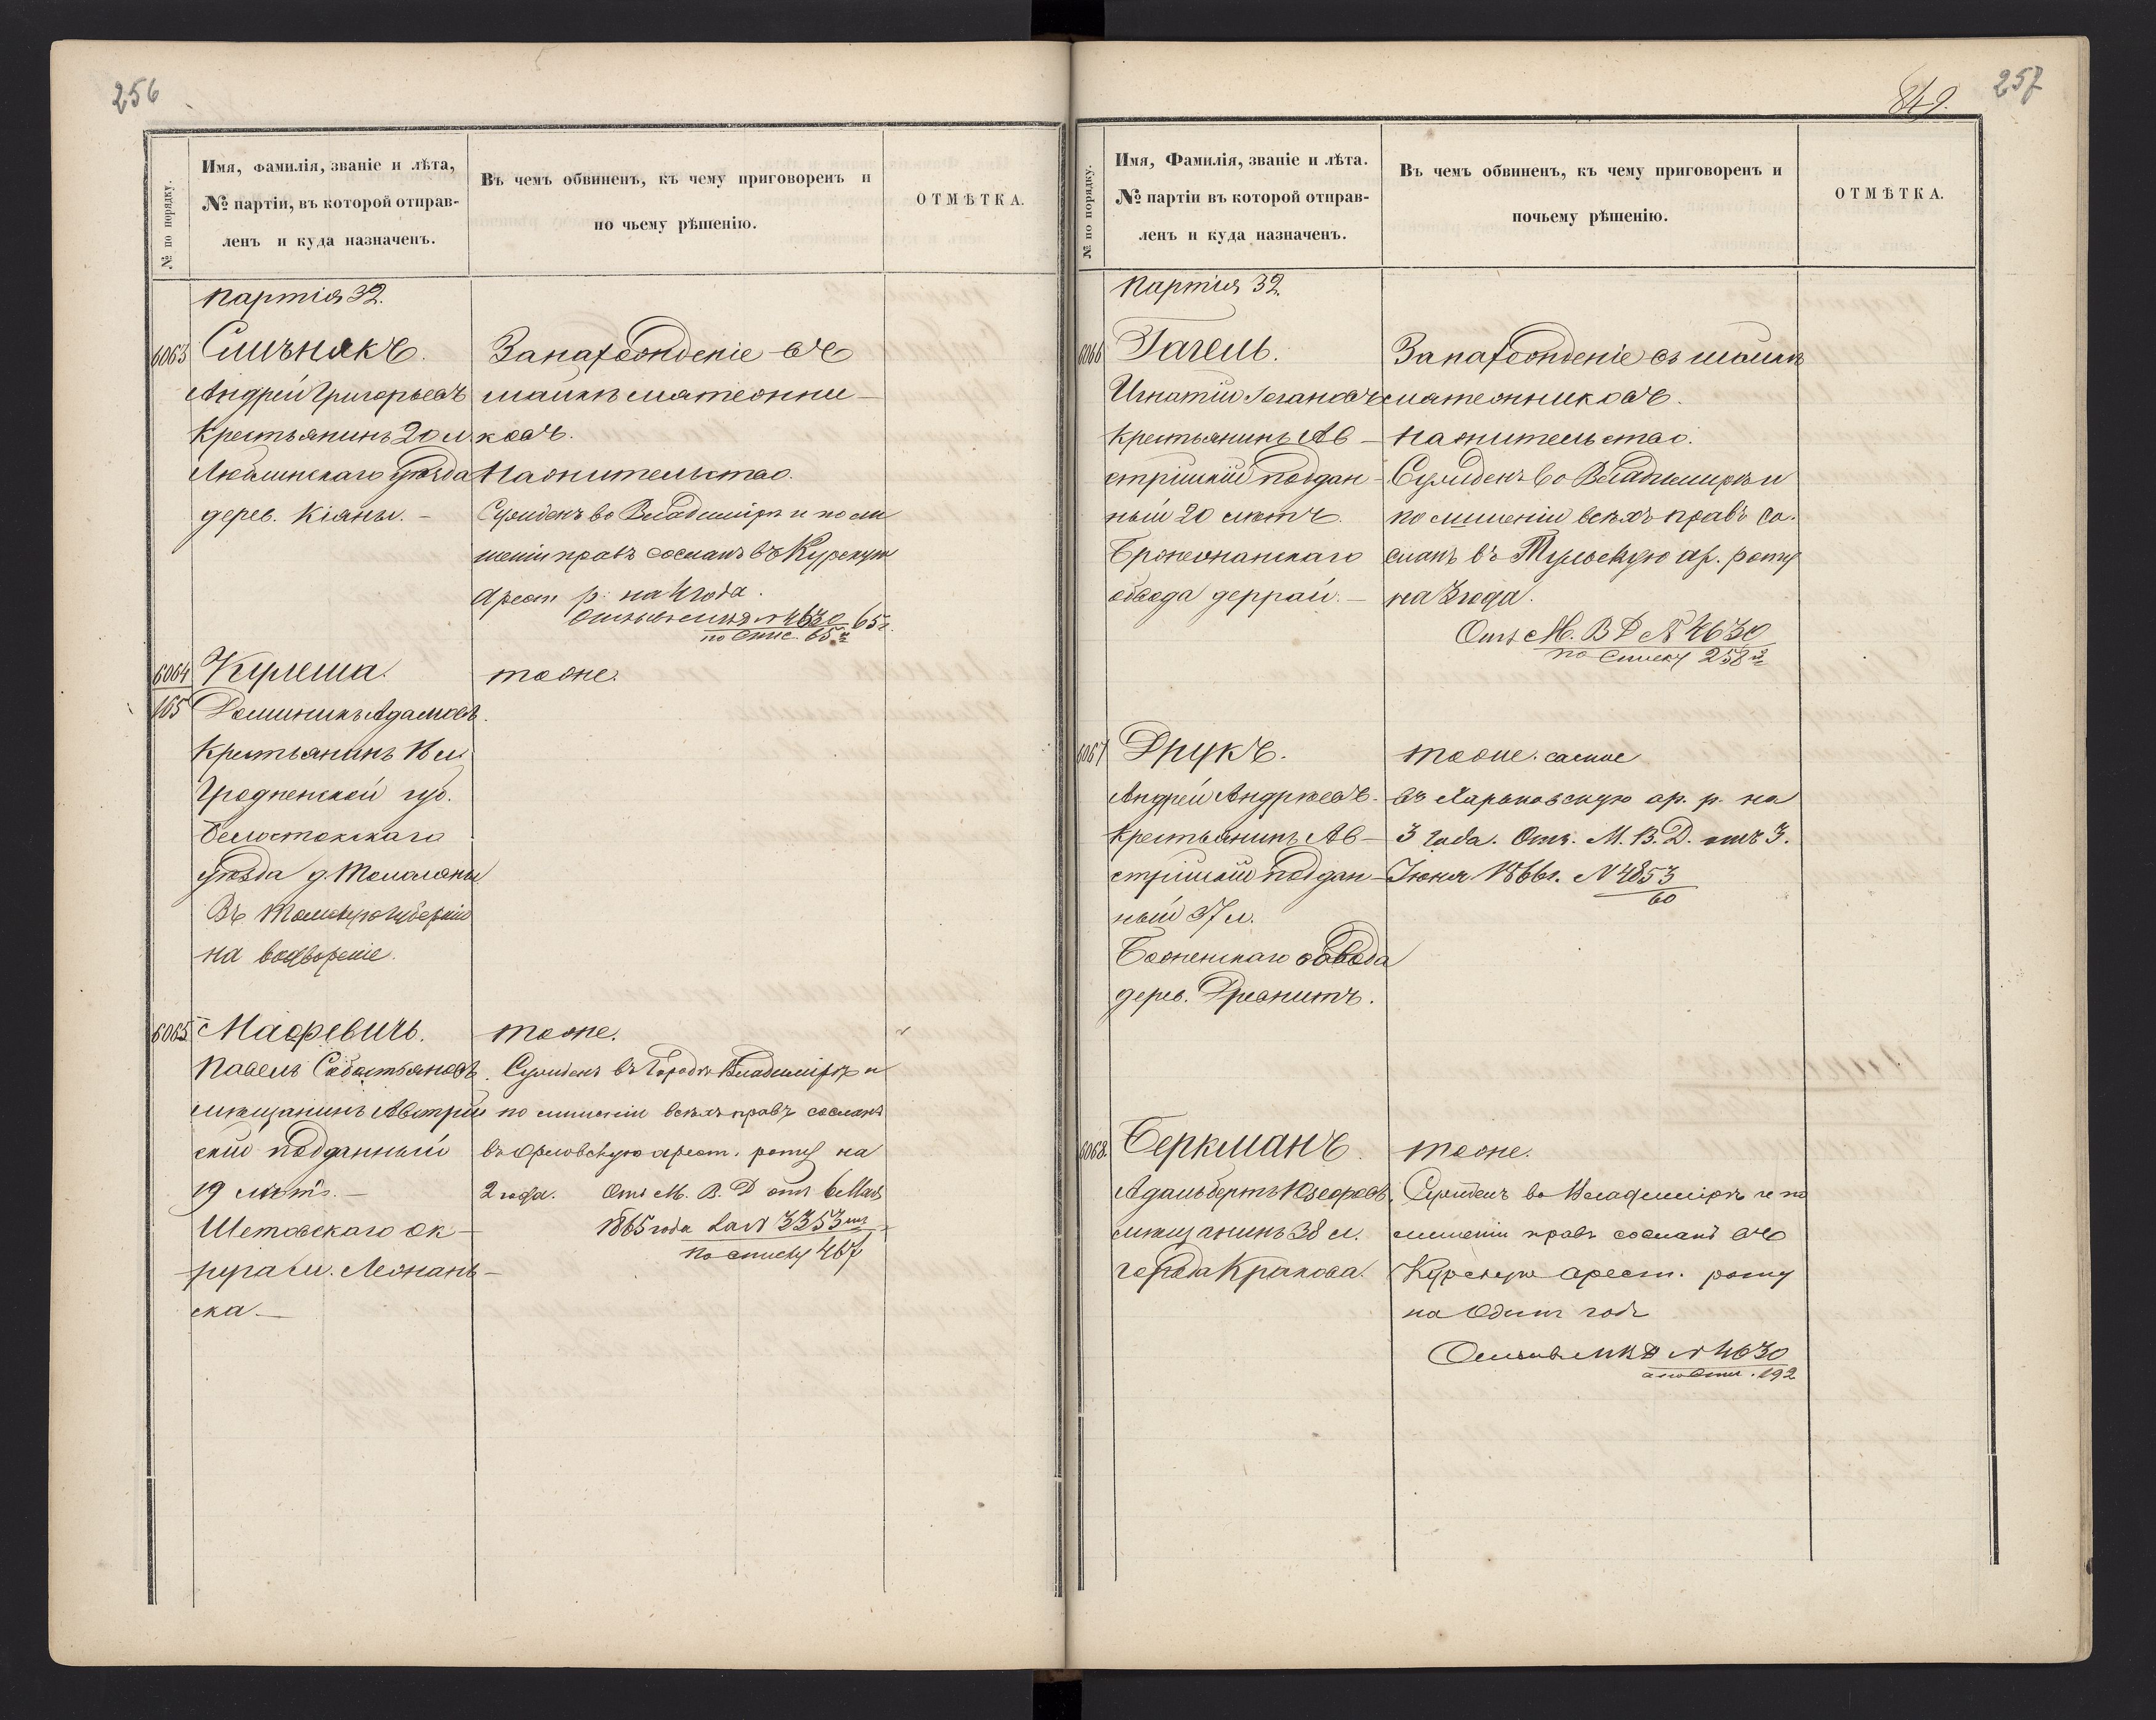 256
№ по порядку.
Имя, фамилія, званіе и лѣта,
№ партіи, въ которой отправ-
ленъ и куда назначенъ.
Въ чемъ обвиненъ, къ чему приговоренъ и
по чьему рѣшенію.
ОТМѢТКА.
Партія 32.
6063
Андрей Григорьевъ
Крестьянинъ 20 л
Люблинскаго уѣзда
дерев. Кіяны. –
За нахожденіе въ
шайкѣ мятежни-
ковъ.
На жительство.
Сужденъ во Владимірѣ и по ли
шеніи правъ сосланъ въ Курскую
Арест р. на 4 года.
№ 4630 65 г.
по спис. 65
6064
165
Кулеша.
Доминикъ Адамовъ.
Крестьянинъ 18 л
Гродненской губ.
Белостокскаго
уѣзда д.
Въ Томскую губернію
на водвореніе.
тоже.
6065
Павелъ Себастьяновъ.
мѣщанинъ Австрій
скій подданный
19 лѣтъ. –
Шетовскаго ок-
руга м. Лежань-
ска. –
тоже.
Сужденъ въ Городѣ Владимірѣ и
по лишеніи всѣхъ правъ сосланъ
въ Орловскую арест. роту на
2 года. Отз М. В. Д отъ 6 Мая
1865 года за № 3353
по списку 467
849.
257
№ по порядку.
Имя, Фамилія, званіе и лѣта.
№ партіи въ которой отправ-
ленъ и куда назначенъ.
Въ чемъ обвиненъ, къ чему приговоренъ и
почьему рѣшенію.
ОТМѢТКА.
Партія 32.
6066
Гагель.
Игнатій Іогановъ
крестьянинъ Ав-
стрійскій поддан-
ный 20 лѣтъ.
обвода деррай. –
За нахожденіе въ шайкѣ
мятежниковъ.
На жительство.
Сужденъ во Владимирѣ и
по лишеніи всѣхъ правъ со-
сланъ въ Тульскую ар. роту
на 3 года.
Отз М. В Д № 4630
по списку 258
6067
Друкъ.
Андрей Андреевъ.
Крестьянинъ Ав-
стрійскій поддан-
ный 37 л.
обвода
дерев.
тоже. сослан
въ Харьковскую ар. р. на
3 года. Отз. М. В. Д. отъ 3.
Іюня 1866 г. № 4853
60
6068.
Беркманъ.
Адальбертъ Юзефовъ.
мѣщанинъ 38 л.
города Кракова.
тоже.
Сужденъ во Владимірѣ и по
лишеніи правъ сосланъ въ
Курскую арест. роту
на Одинъ годъ
МВД № 4630
192